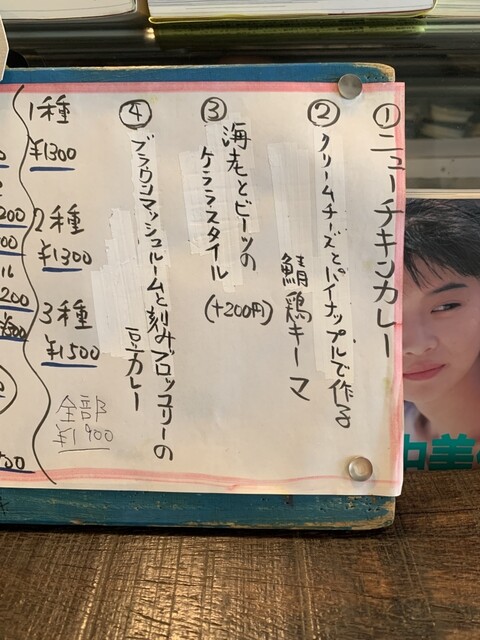 ①ニューチキンカレー
②クリームチーズとパイナップルで作る
鯖鶏キーマ
③海老とビーツの
ケララスタイル
(+200円)
④ブラウンマッシュルームと刻みブロッコリーの
豆カレー
1種
¥1300
2種
¥1300
3種
¥1500
全部
¥1900
200
00
ル
200